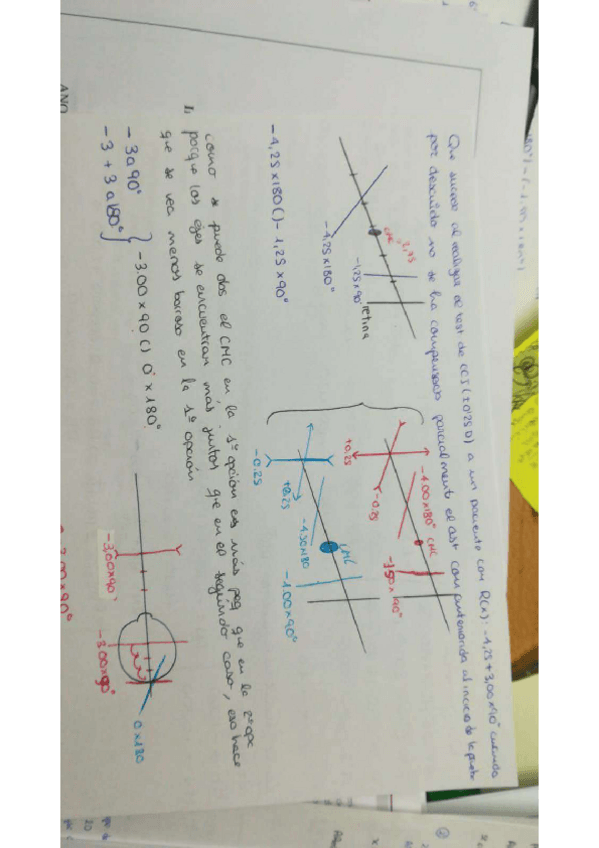 Que sucede al realizar el test de CCJ (±0'25 D) a un paciente con R(x): -4,25 + 3,00 x 90° cuando
por descuido no se ha compensado parcialmente el ast con anterioridad al inicio de la prueba
CMC
2,75
-4,25x180°
-1,25x90°
retina
-4,25 x 180 () -1,25 x 90°
+0.25
-0.25
-4.00x180°
CMC
-1.50x90°
-0.25
+0.25
-4.50x180
CMC
-1.00x90°
como se puede el CMC en la 1ª opción es más peq que en la 2ª opc
porque los ejes se encuentran más juntos que en el segundo caso, eso hace
que se vea menos borroso en la 1ª opción
1,
-3 a 90°
-3 + 3 a 180°
-3.00 x 90 () 0° x 180°
-3,00x90°
-3.00x90°
0x180
-3.00x90°
ANO